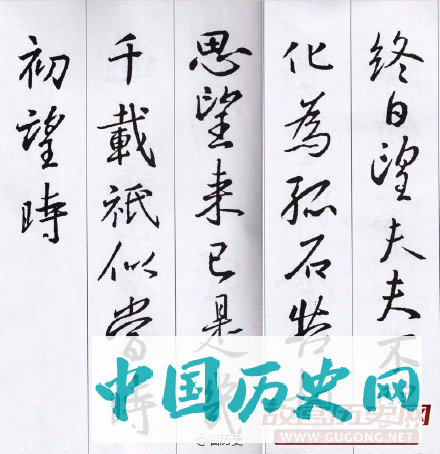 終日望夫夫不
化為孤石苦相
思望来已是幾
千載祇似當時
初望時
中国历史网
故宫历史网
WWW.GUGONG.NET